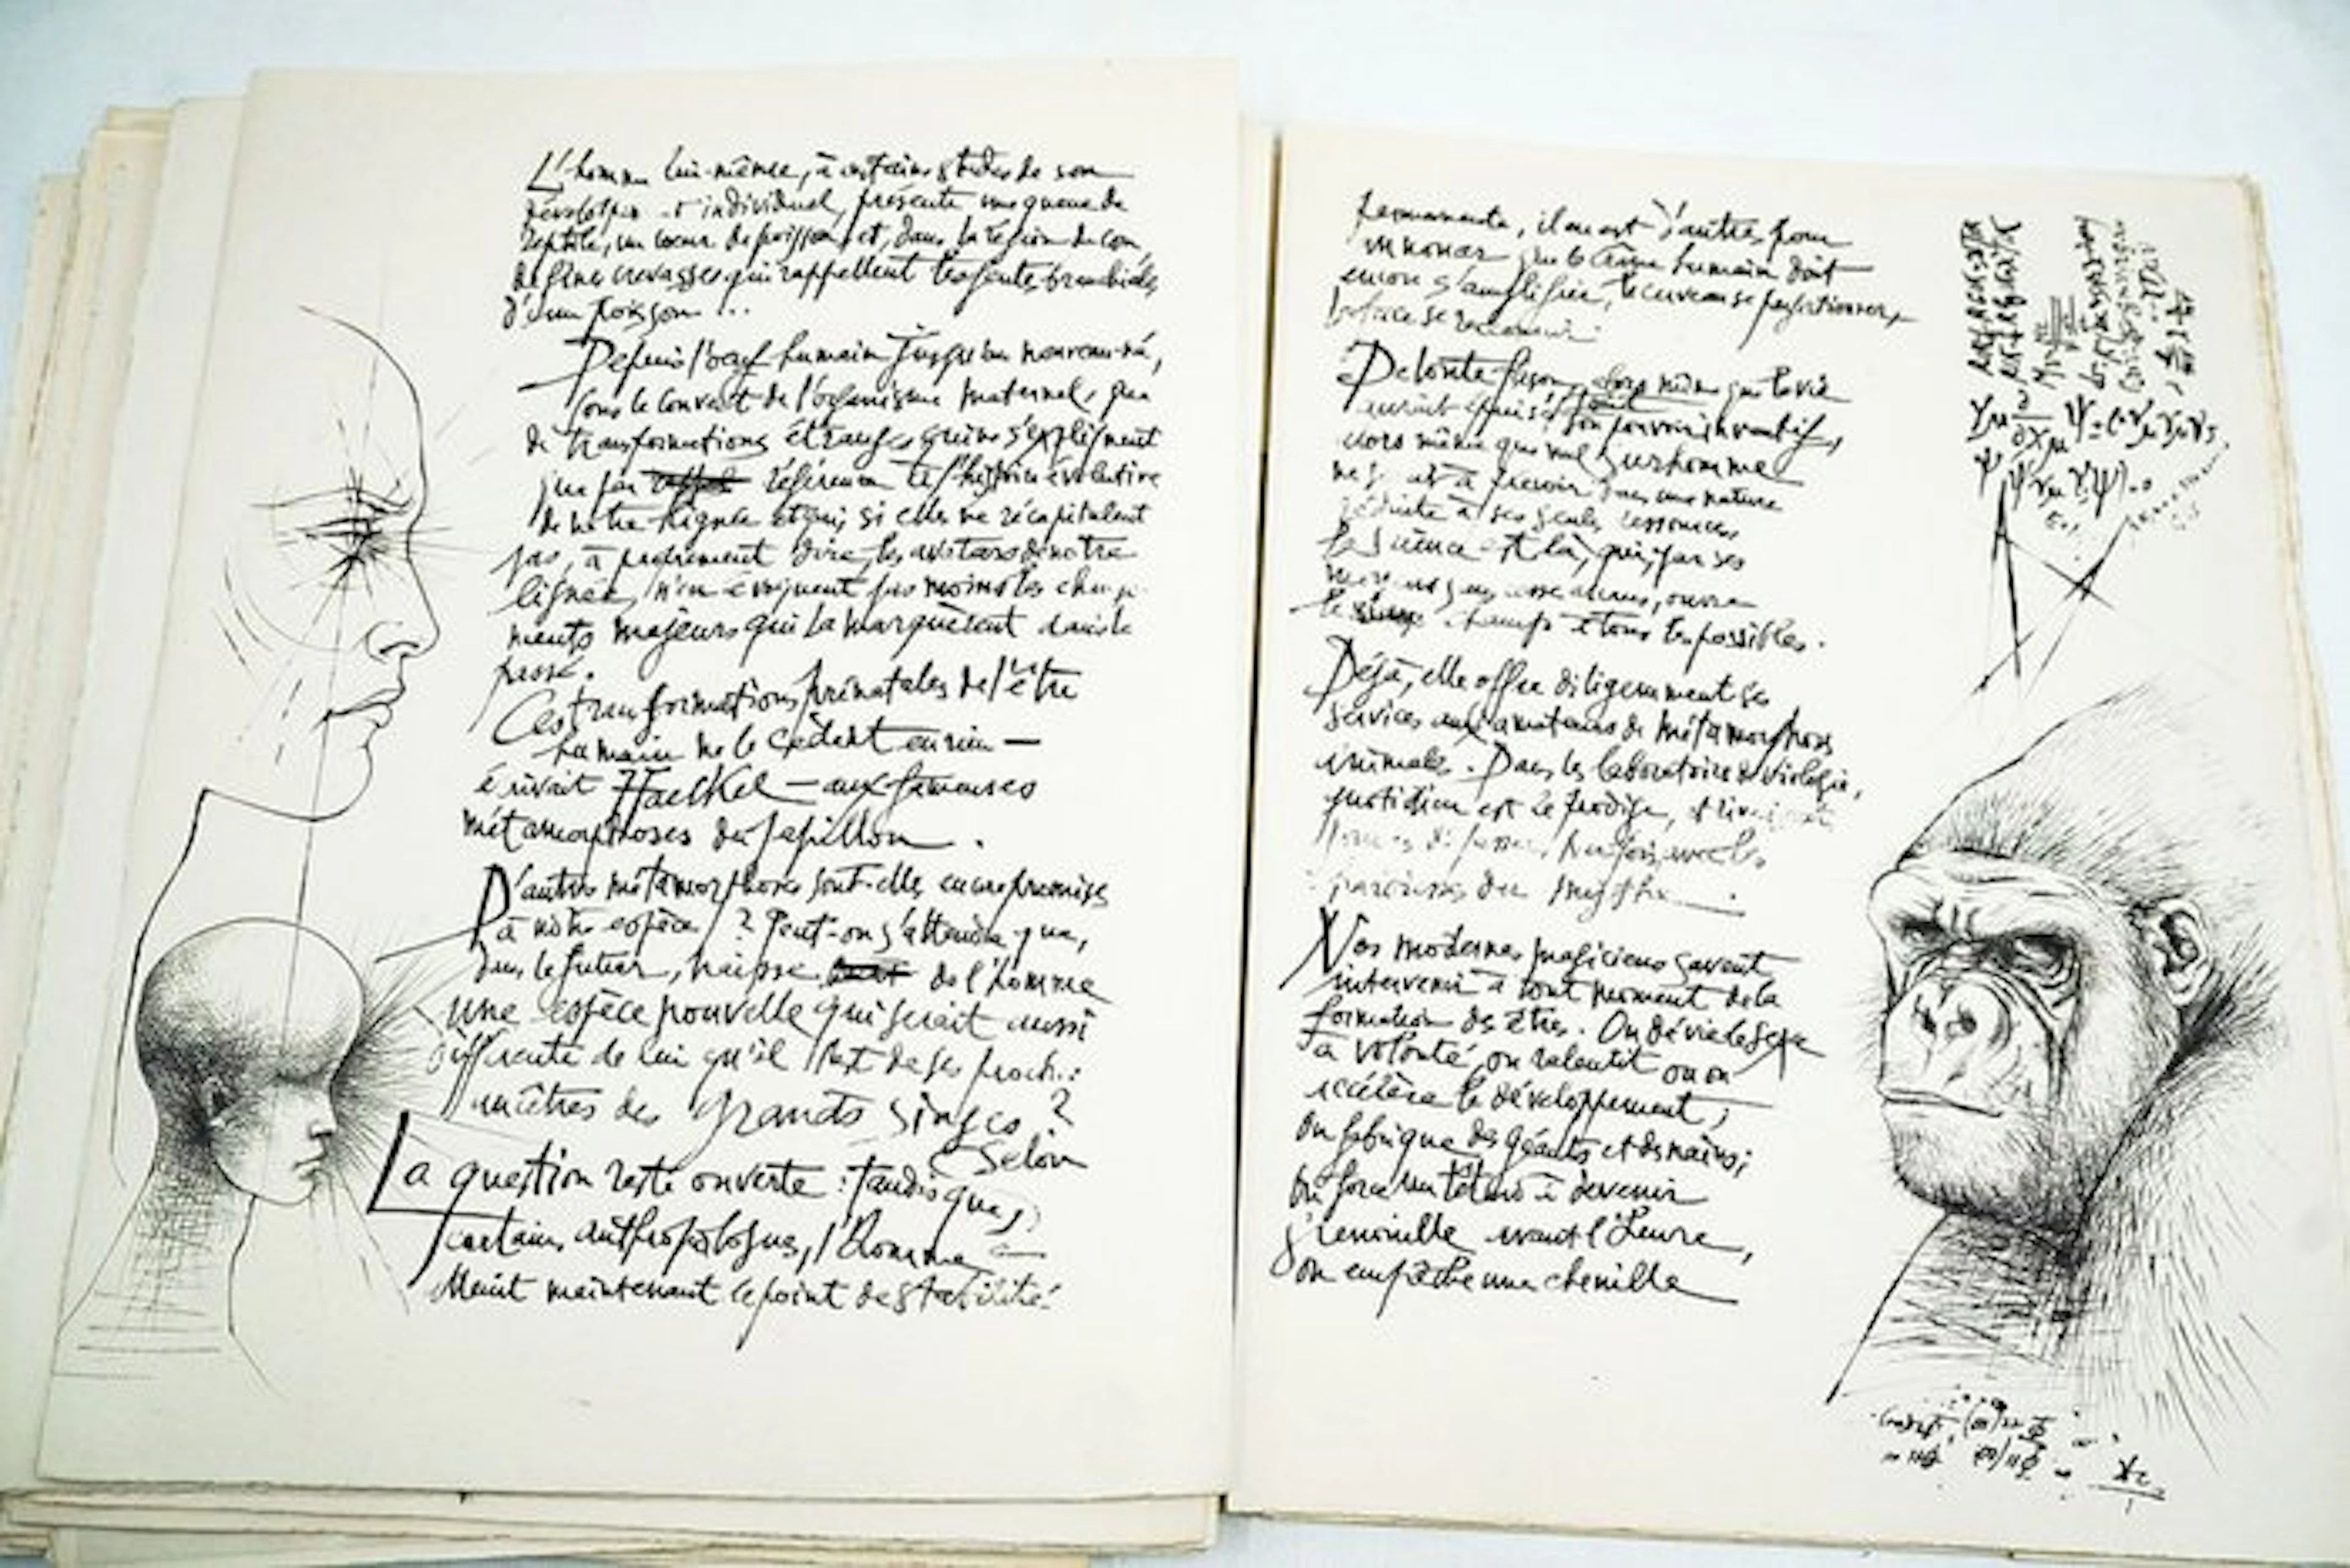 L'homme lui-même, à certains stades de son
développement individuel, présente une queue de
reptile, un cœur de poisson, et, dans la région du cou,
de fines crevasses qui rappellent les fentes branchiales
d'un poisson ...
Depuis l'œuf humain jusqu'au nouveau-né,
sous le couvert de l'organisme maternel, que
de transformations étranges qui ne s'expliquent
que par référence à l'histoire évolutive
de notre lignée et qui, si elles ne récapitulent
pas, à proprement dire, les avatars de notre
lignée, n'en évoquent pas moins les change-
ments majeurs qui la marquèrent dans le
passé.
Ces transformations prénatales de l'être
humain ne le cèdent en rien —
écrivait Haeckel — aux fameuses
métamorphoses du papillon.
D'autres métamorphoses sont-elles encore promises
à notre espèce ? Peut-on s'attendre que,
dans le futur, naisse de l'homme
une espèce nouvelle qui serait aussi
différente de lui qu'il l'est de ses proches :
ancêtres des grands singes ?
La question reste ouverte : tandis que, selon
certains anthropologues, l'homme a
atteint maintenant le point de stabilité
permanente, il en est d'autres pour
annoncer que le crâne humain doit
encore s'amplifier, le cerveau se perfectionner,
la face se raccourcir.
De toute façon, alors même que la vie
aurait épuisé son pouvoir inventif,
alors même que nul surhomme
ne serait à prévoir dans une nature
réduite à ses seules ressources,
la science est là, qui, par ses
ouvre
le champ à tous les possibles.
Déjà, elle offre diligemment ses
services aux amateurs de métamorphoses
animales. Dans les laboratoires de biologie,
quotidien est le prodige, et
parfois, avec les
prouesses du mythe.
Nos modernes magiciens savent
intervenir à tout moment de la
formation des êtres. On dévie le sexe
à volonté, on ralentit ou on
accélère le développement ;
on fabrique des géants et des nains ;
on force un têtard à devenir
grenouille avant l'heure,
on empêche une chenille